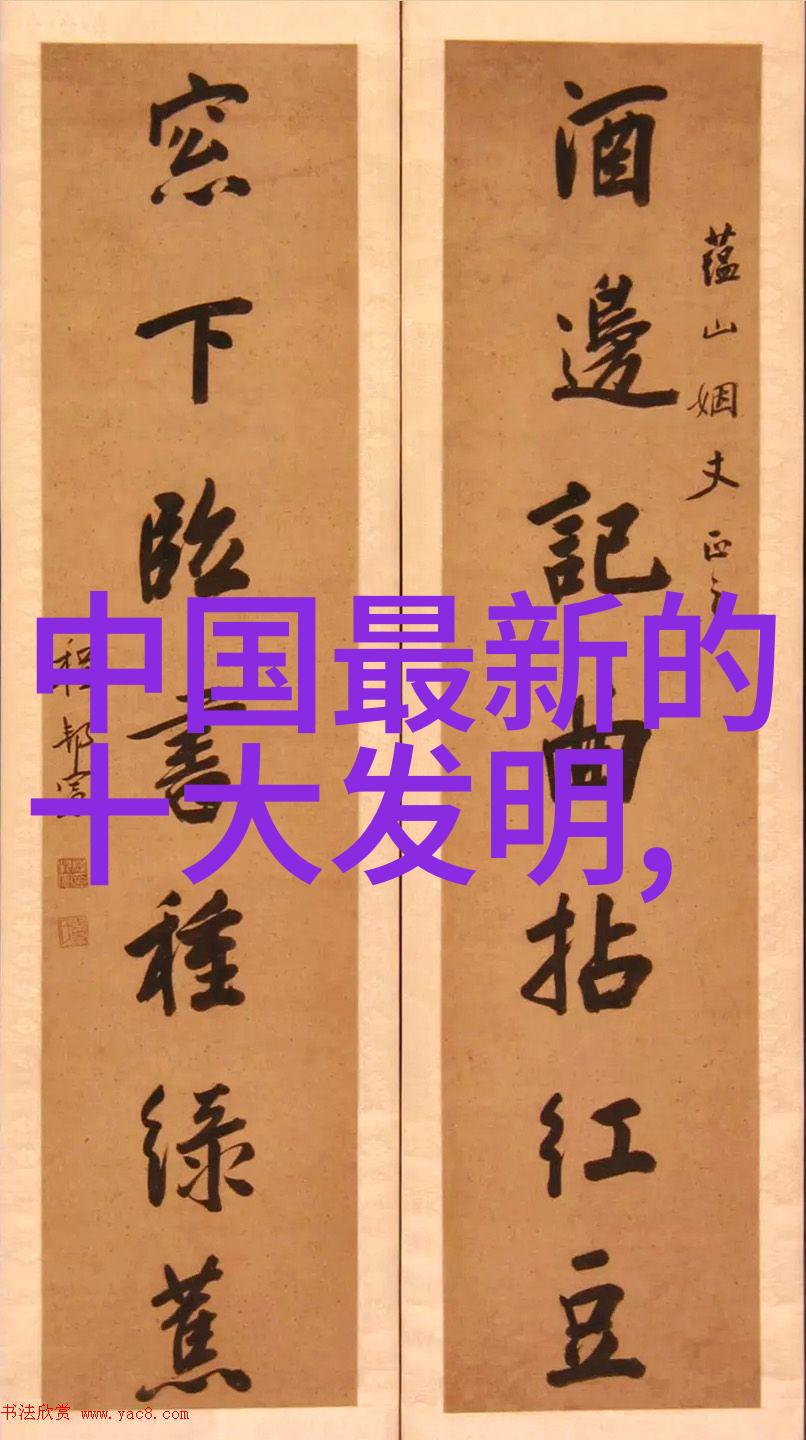 酒邊記曲拈紅豆
蘊山姻丈正之
窓下臨書種綠蕉
程邦憲
中国最新的
十大发明,
书法欣赏 www.yac8.com